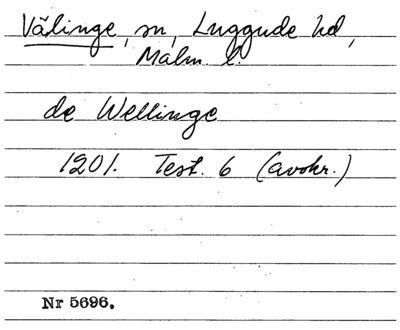 Välinge, sn, Luggude hd,
Malm. l.
de Wellinge
1201. Test. 6 (avskr.)
Nr 5696.